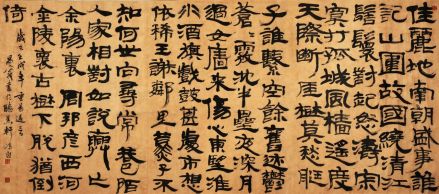 佳麗地南朝盛事誰
記山圍故國繞清江
髻鬟對起怒濤寂
寞打孤城風檣遙度
天際斷崖樹莫愁艇
子誰繫空餘舊迹鬱
蒼蒼霧沈半壘夜深月
過女牆來傷心東望淮
水酒旗戲鼓甚處市想
依稀王謝鄰里燕子不
知何世向尋常巷陌
人家相對如說興亡
斜陽裏周邦彥西河
金陵懷古樹下脫猶倒
倚